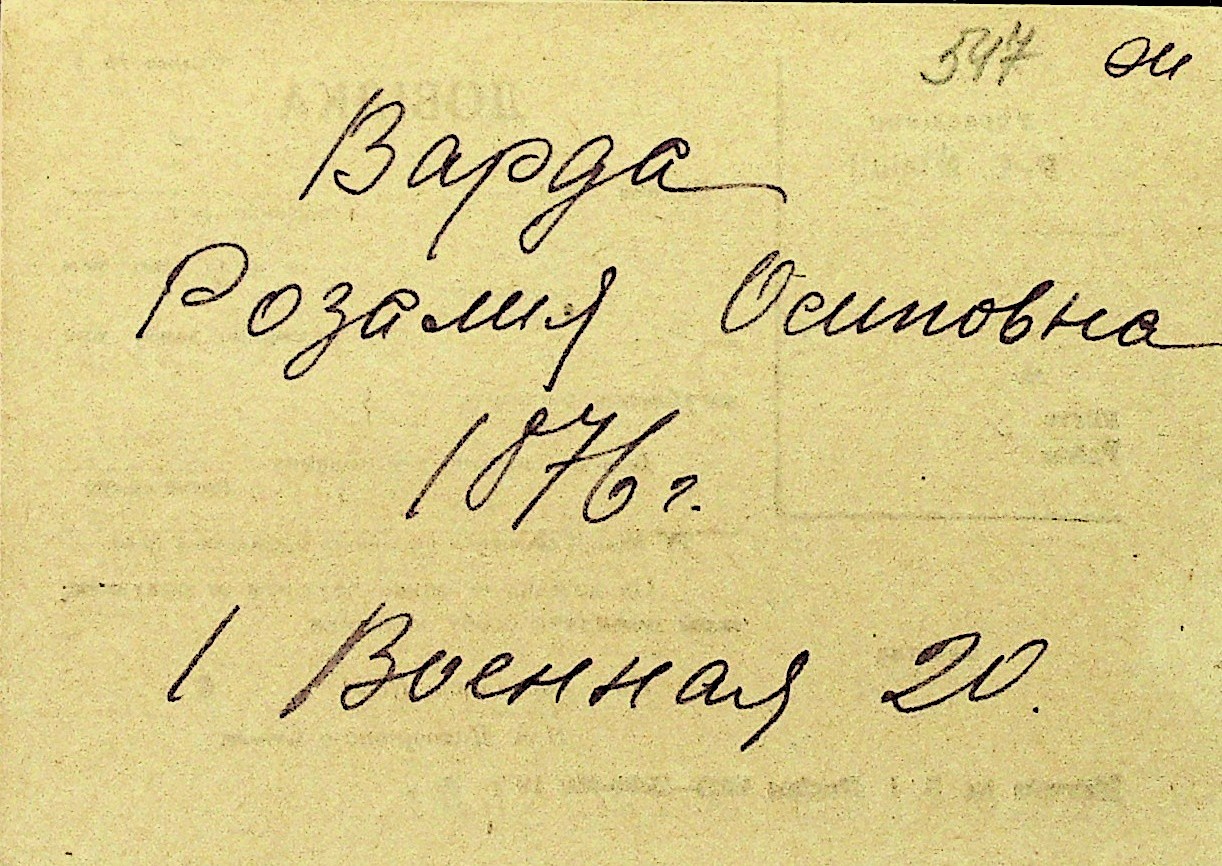 547 ж
Варда
Розалия Осиповна
1876 г.
1 Военная 20.